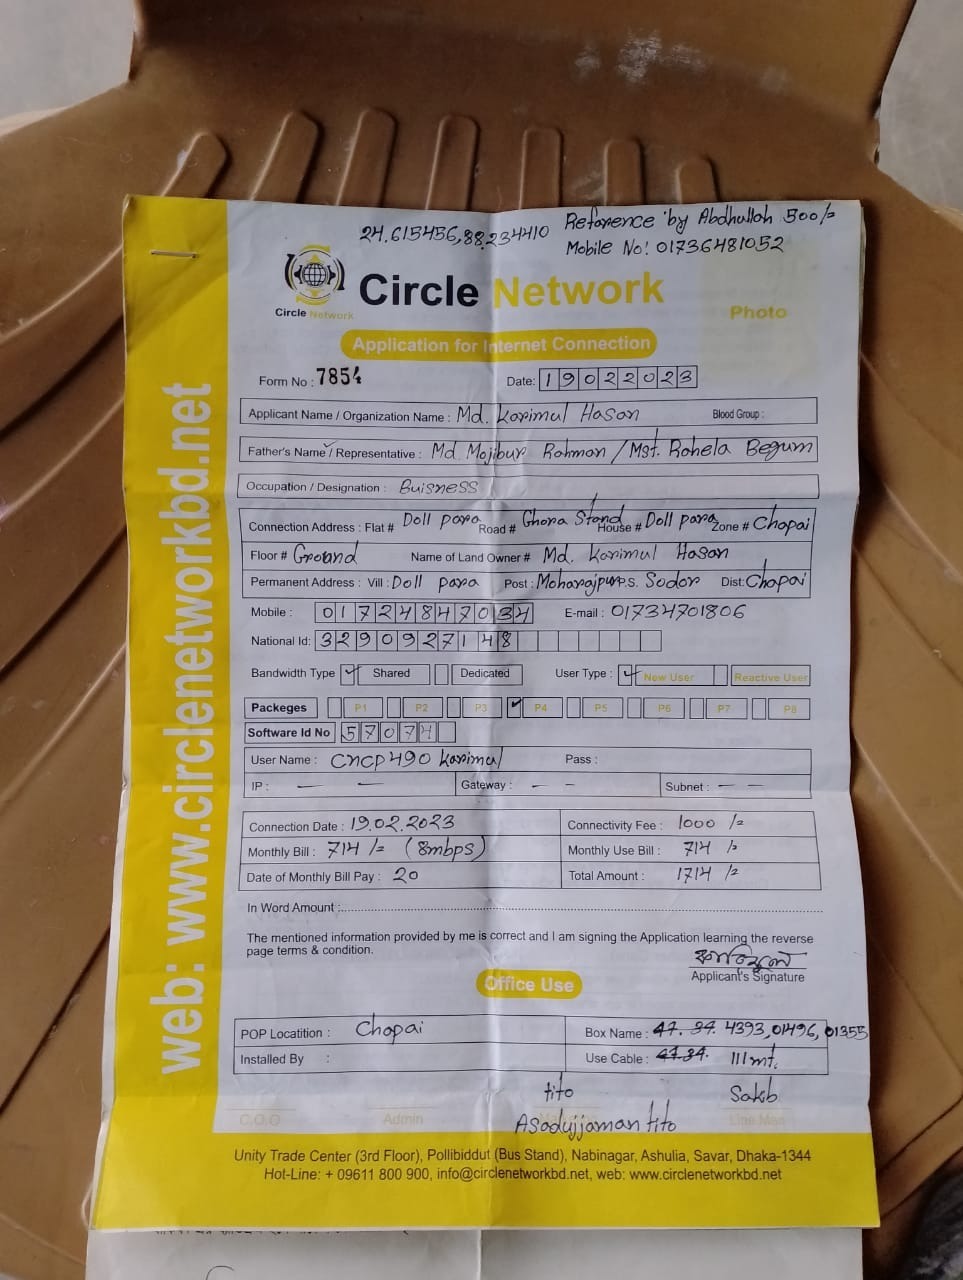 24.615456,88.234410
Reforence by Abdhulloh 500/=
Mobile No: 01736481052
Circle Network
Circle Network
Photo
Application for Internet Connection
Form No : 7854
Date: 19022023
Applicant Name / Organization Name : Md. Karimul Hasan Blood Group :
Father's Name / Representative : Md Mojibur Rahman / Mst. Rahela Begum
Occupation / Designation : Buisness
Connection Address : Flat # Doll para Road # Ghora Stand House # Doll para Zone # Chapai
Floor # Ground Name of Land Owner # Md. Karimul Hasan
Permanent Address : Vill : Doll para Post : Moharajpur P.S. Sodor Dist: Chapai
Mobile : 01724847034 E-mail : 01734701806
National Id: 3290927148
Bandwidth Type ✓ Shared Dedicated User Type : ✓ New User Reactive User
Packeges P1 P2 P3 ✓ P4 P5 P6 P7 P8
Software Id No 57074
User Name : cncp490 karimul Pass :
IP : — — Gateway : — — Subnet : — —
Connection Date : 19.02.2023 Connectivity Fee : 1000 /=
Monthly Bill : 714 /= (8mbps) Monthly Use Bill : 714 /=
Date of Monthly Bill Pay : 20 Total Amount : 1714 /=
In Word Amount :
The mentioned information provided by me is correct and I am signing the Application learning the reverse
page terms & condition.
Applicant's Signature
Office Use
POP Locatition : Chapai Box Name : 47. 34. 4393, 01496, 01355
Installed By : Use Cable : 47.34. 111 mt.
tito Sakib
Asadujjaman tito
C.O.O Admin Line Man
Unity Trade Center (3rd Floor), Pollibiddut (Bus Stand), Nabinagar, Ashulia, Savar, Dhaka-1344
Hot-Line: + 09611 800 900, info@circlenetworkbd.net, web: www.circlenetworkbd.net
web: www.circlenetworkbd.net